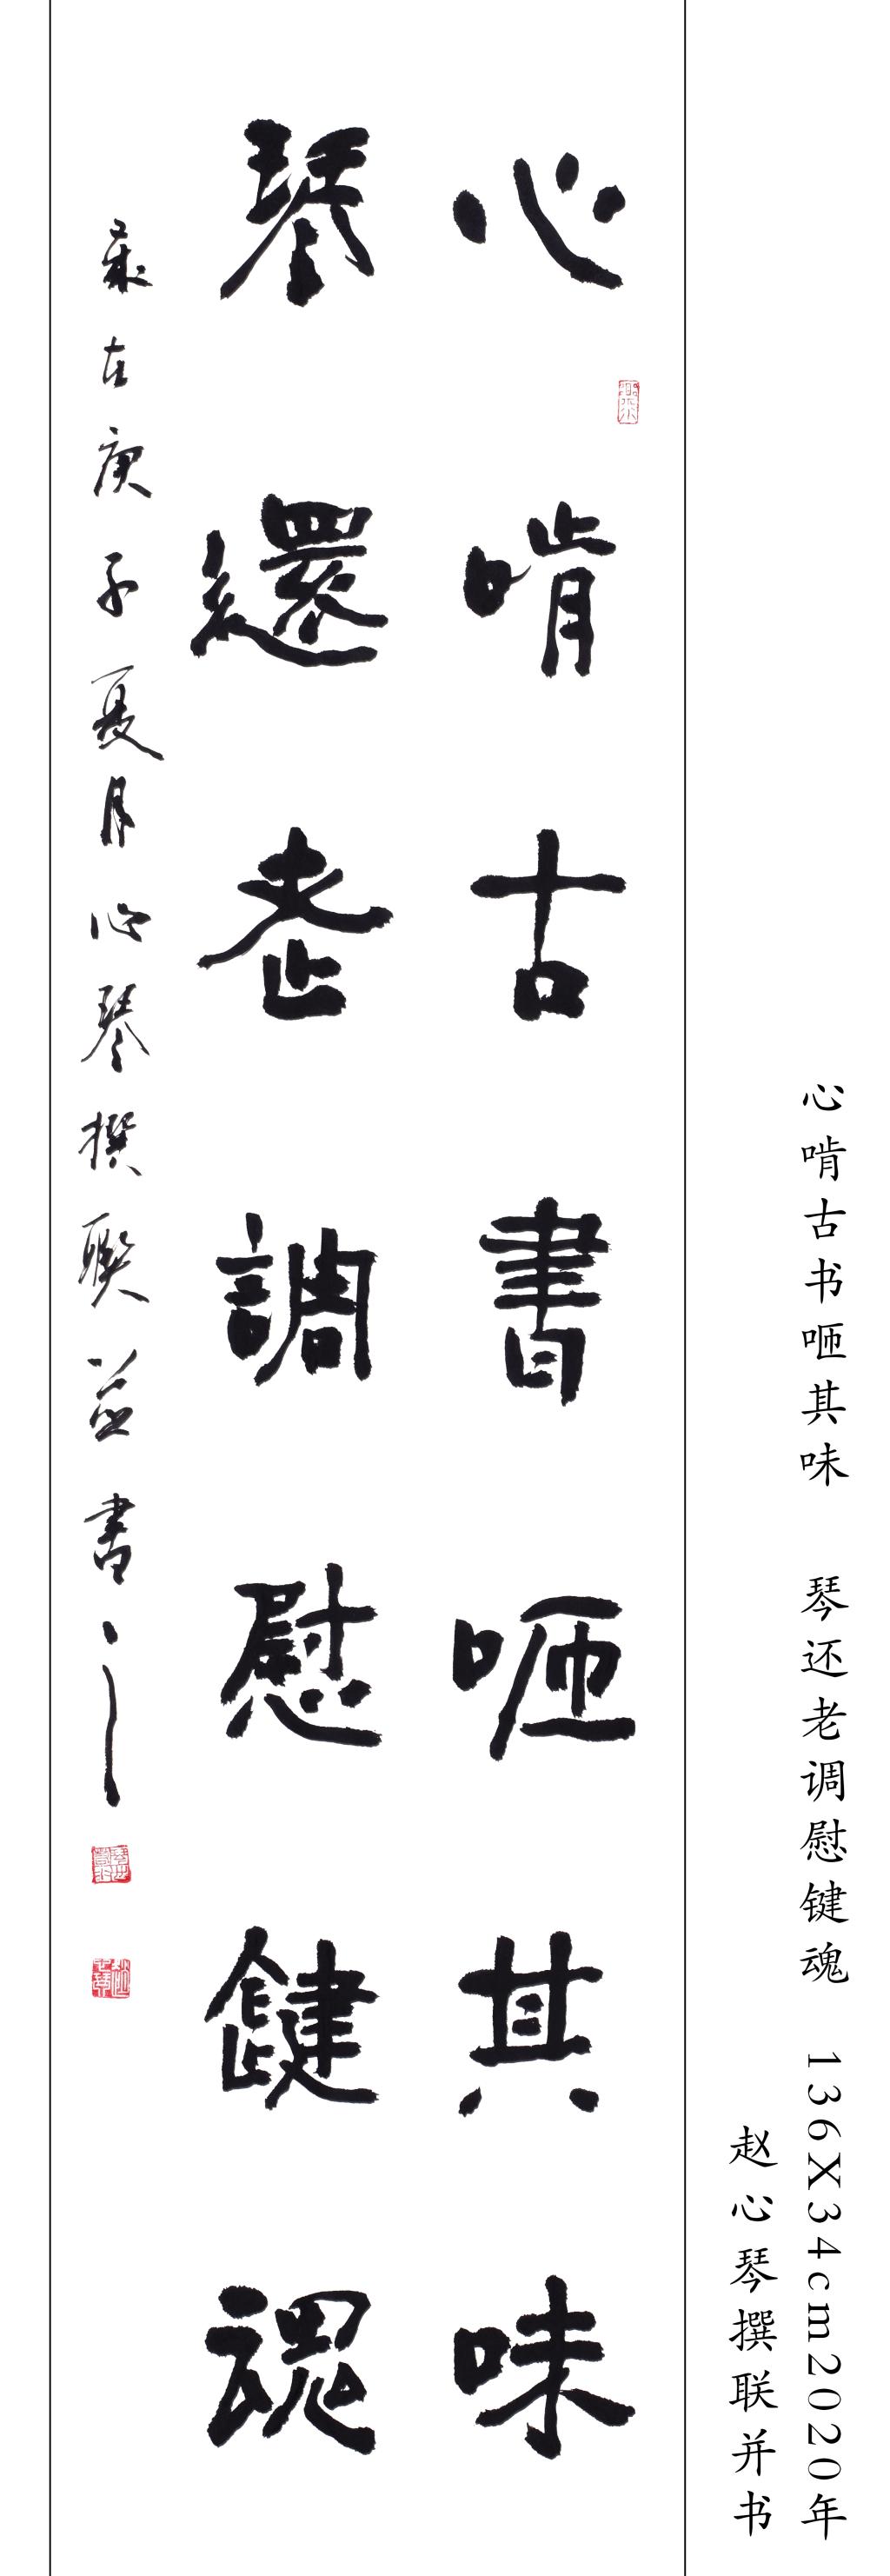 心啃古书咂其味 琴还老调慰键魂 136X34cm2020年
赵心琴撰联并书
心啃古書咂其味
琴還老調慰鍵魂
歲在庚子夏月心琴撰聯并書